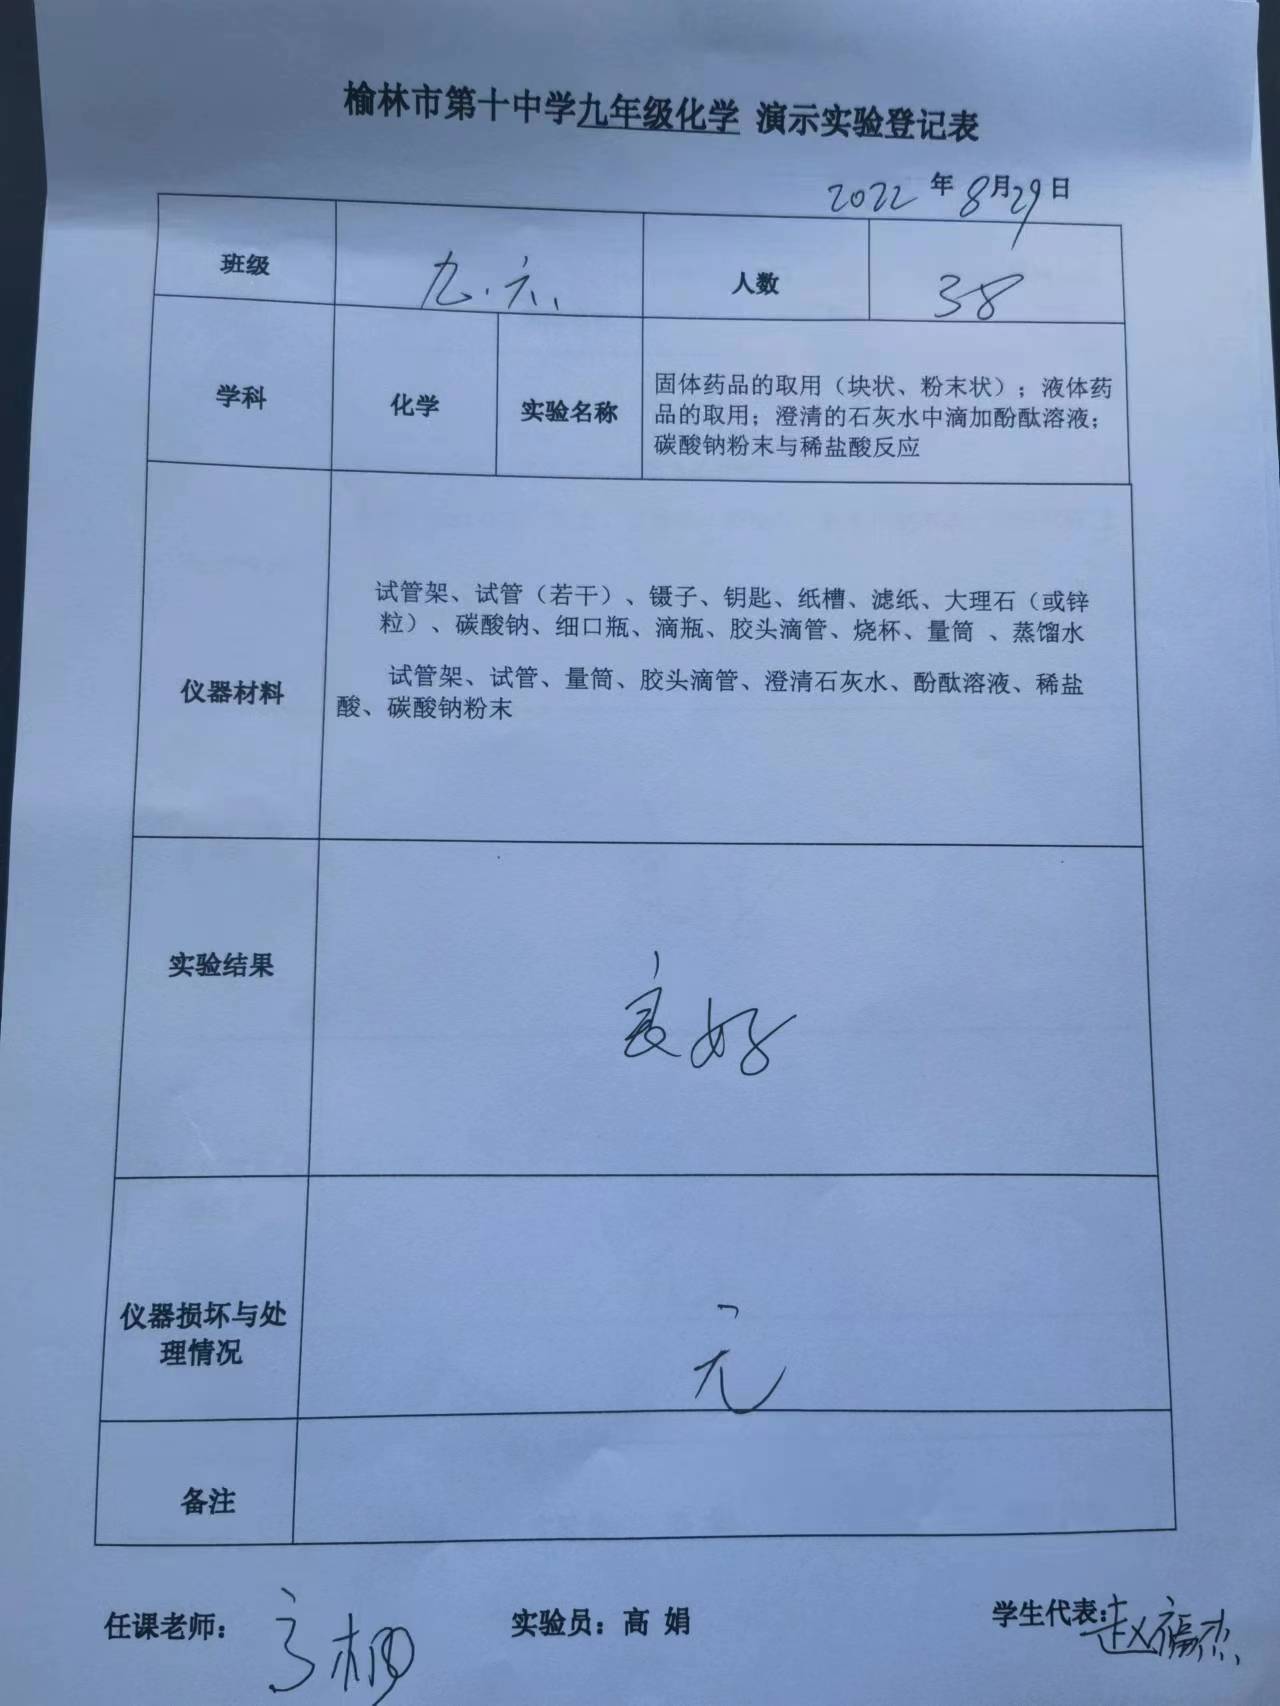 榆林市第十中学九年级化学 演示实验登记表
2022年8月29日
班级 九.六. 人数 38
学科 化学 实验名称
固体药品的取用（块状、粉末状）；液体药
品的取用；澄清的石灰水中滴加酚酞溶液；
碳酸钠粉末与稀盐酸反应
仪器材料
试管架、试管（若干）、镊子、钥匙、纸槽、滤纸、大理石（或锌
粒）、碳酸钠、细口瓶、滴瓶、胶头滴管、烧杯、量筒 、蒸馏水
试管架、试管、量筒、胶头滴管、澄清石灰水、酚酞溶液、稀盐
酸、碳酸钠粉末
实验结果 良好
仪器损坏与处
理情况
备注
任课老师： 实验员：高 娟 学生代表：赵福杰